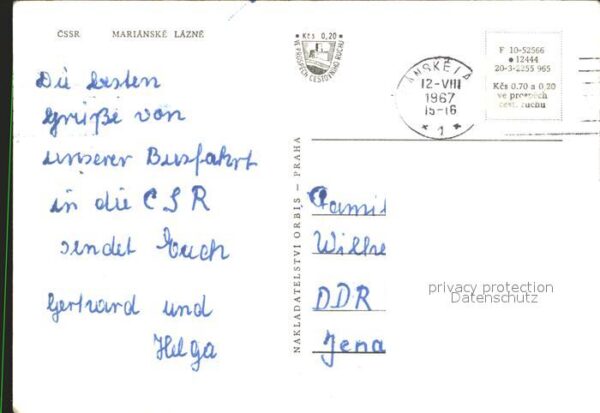 ČSSR MARIÁNSKÉ LÁZNĚ
Kčs 0,20
VE PROSPĚCH CESTOVNÍHO RUCHU
F 10-52566
12444
20-3-2255 965
Kčs 0.70 a 0,20
ve prospěch
cest. ruchu
12-VIII
1967
15-16
* 1 *
Die besten
Grüße von
unserer Busfahrt
in die CSR
sendet Euch
Gerhard und
Helga
NAKLADATELSTVÍ ORBIS – PRAHA
Famil
Wilhe
DDR
Jena
privacy protection
Datenschutz